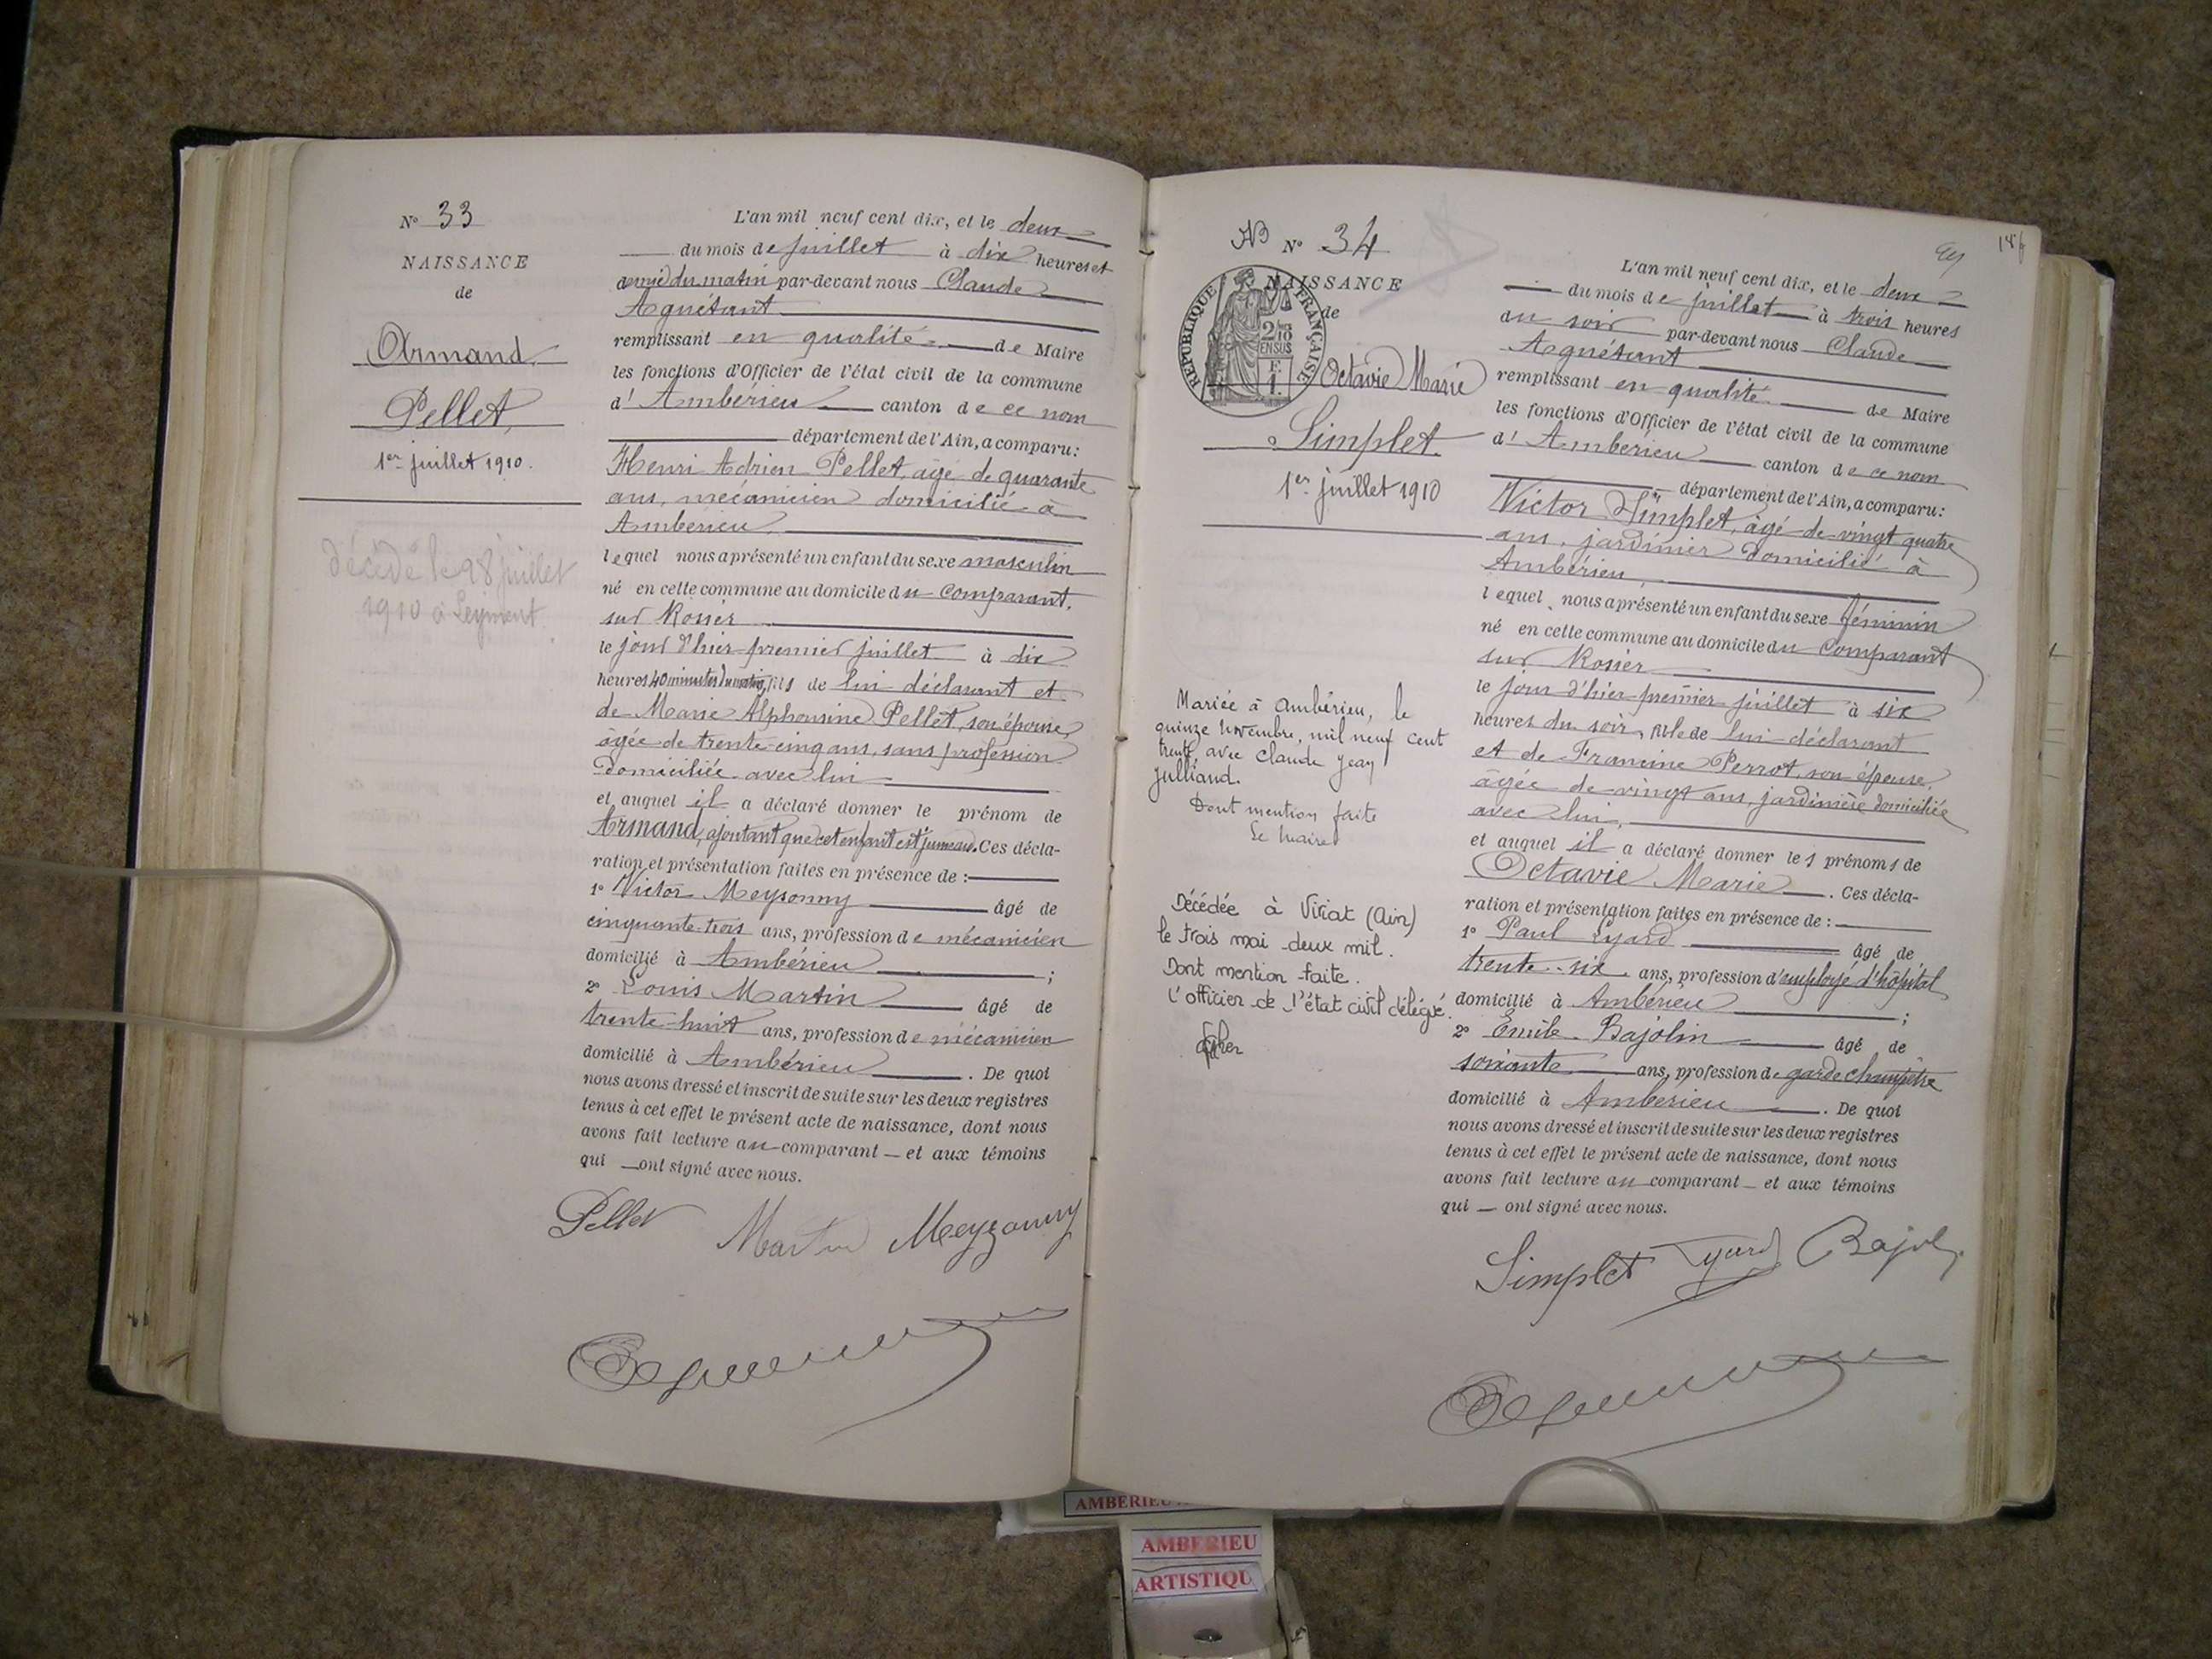 N° 33
NAISSANCE
de
Armand
Pellet
1er juillet 1910.
décédé le 28 juillet
1910 à Leyment.
L'an mil neuf cent dix, et le deux
du mois de juillet à dix heures et
demie du matin par-devant nous Claude
Aguétant
remplissant en qualité de Maire
les fonctions d'Officier de l'état civil de la commune
d'Ambérieu canton de ce nom
département de l'Ain, a comparu:
Henri Adrien Pellet, âgé de quarante
ans, mécanicien domicilié à
Ambérieu,
lequel nous a présenté un enfant du sexe masculin
né en cette commune au domicile du comparant,
sur Rosier
le jour d'hier premier juillet à dix
heures 40 minutes du matin, fils de lui déclarant et
de Marie Alphonsine Pellet, son épouse,
âgée de trente cinq ans, sans profession
domiciliée avec lui
et auquel il a déclaré donner le prénom de
Armand, ajoutant que cet enfant est jumeau. Ces décla-
ration et présentation faites en présence de :
1° Victor Meysonny âgé de
cinquante-trois ans, profession de mécanicien
domicilié à Ambérieu ;
2° Louis Martin âgé de
trente-huit ans, profession de mécanicien
domicilié à Ambérieu . De quoi
nous avons dressé et inscrit de suite sur les deux registres
tenus à cet effet le présent acte de naissance, dont nous
avons fait lecture au comparant et aux témoins
qui ont signé avec nous.
Pellet Martin Meyzonny
N° 34
NAISSANCE
de
REPUBLIQUE FRANÇAISE
2/10
EN SUS
F.
1.
Octavie Marie
Simplet.
1er juillet 1910
Mariée à Ambérieu, le
quinze novembre, mil neuf cent
trente avec Claude Jean
Julliand.
Dont mention faite
Le Maire
Décédée à Viriat (Ain)
le trois mai deux mil.
Dont mention faite.
L'officier de l'état civil délégué.
L'an mil neuf cent dix, et le deux
du mois de juillet à trois heures
du soir par-devant nous Claude
Aguétant
remplissant en qualité de Maire
les fonctions d'Officier de l'état civil de la commune
d'Ambérieu canton de ce nom
département de l'Ain, a comparu:
Victor Simplet, âgé de vingt quatre
ans, jardinier domicilié à
Ambérieu,
lequel nous a présenté un enfant du sexe féminin
né en cette commune au domicile du comparant
sur Rosier
le jour d'hier premier juillet à six
heures du soir, fille de lui déclarant
et de Francine Perrot, son épouse,
âgée de vingt ans, jardinière domiciliée
avec lui,
et auquel il a déclaré donner les prénoms de
Octavie Marie . Ces décla-
ration et présentation faites en présence de :
1° Paul Lyard âgé de
trente-six ans, profession d'employé d'hôpital
domicilié à Ambérieu ;
2° Emile Bajolin âgé de
soixante ans, profession de garde champêtre
domicilié à Ambérieu . De quoi
nous avons dressé et inscrit de suite sur les deux registres
tenus à cet effet le présent acte de naissance, dont nous
avons fait lecture au comparant et aux témoins
qui ont signé avec nous.
Simplet
AMBERIEU
AMBERIEU
ARTISTIQU